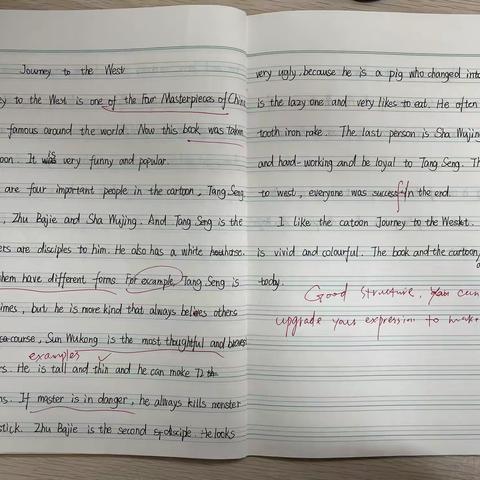 Journey to the West
ey to the West is one of the Four Masterpieces of China
famous around the world. Now this book was taken
oon. It is very funny and popular.
are four important people in the cartoon, Tang Seng
, Zhu Bajie and Sha Wujing. And Tang Seng is the
ers are disciples to him. He also has a white horse.
hem have different forms. For example, Tang Seng is
imes, but he is more kind that always belives others
course, Sun Wukong is the most thoughtful and bravest
examples
rs. He is tall and thin and he can make 72
ns. If master is in danger, he always kills monster
stick. Zhu Bajie is the second disciple. He looks
very ugly, because he is a pig who changed into
is the lazy one and very likes to eat. He often
tooth iron rake. The last person is Sha Wujing
and hard-working and be loyal to Tang Seng. Th
to west, everyone was successful in the end.
I like the catoon Journey to the West. It
is vivid and colourful. The book and the cartoon
today.
Good structure, You can
upgrade your expression to make